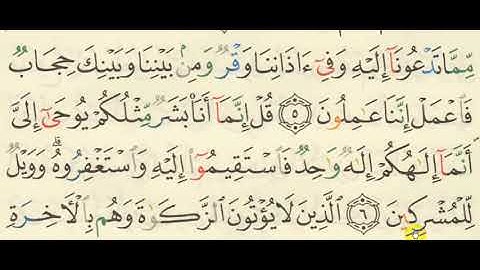 مِّمَّا تَدْعُونَآ إِلَيْهِ وَفِىٓ ءَاذَانِنَا وَقْرٌ وَمِنۢ بَيْنِنَا وَبَيْنِكَ حِجَابٌ
فَٱعْمَلْ إِنَّنَا عَٰمِلُونَ ٥ قُلْ إِنَّمَآ أَنَا۠ بَشَرٌ مِّثْلُكُمْ يُوحَىٰٓ إِلَىَّ
أَنَّمَآ إِلَٰهُكُمْ إِلَٰهٌ وَٰحِدٌ فَٱسْتَقِيمُوٓا۟ إِلَيْهِ وَٱسْتَغْفِرُوهُ ۗ وَوَيْلٌ
لِّلْمُشْرِكِينَ ٦ ٱلَّذِينَ لَا يُؤْتُونَ ٱلزَّكَوٰةَ وَهُم بِٱلْءَاخِرَةِ